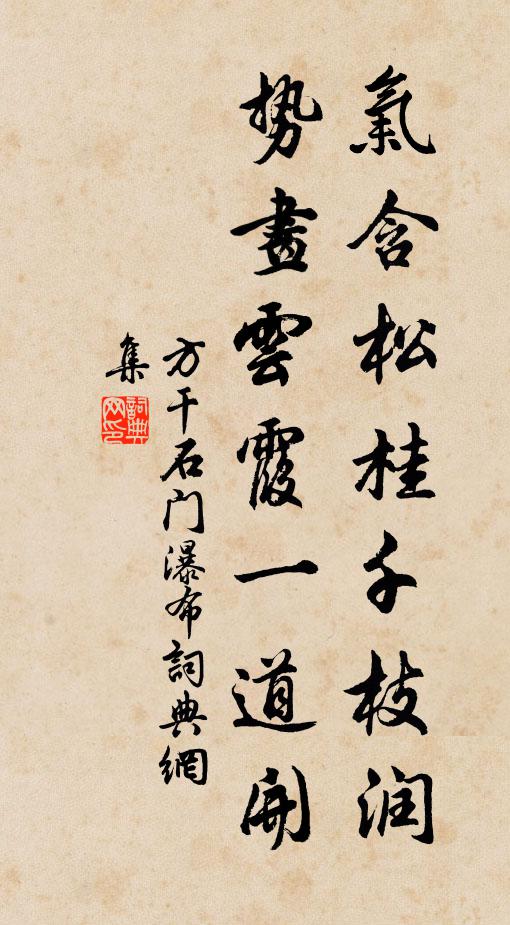 氣含松桂千枝润
势畫雲霞一道開
方干石门瀑布詞典網
集
詞典网印